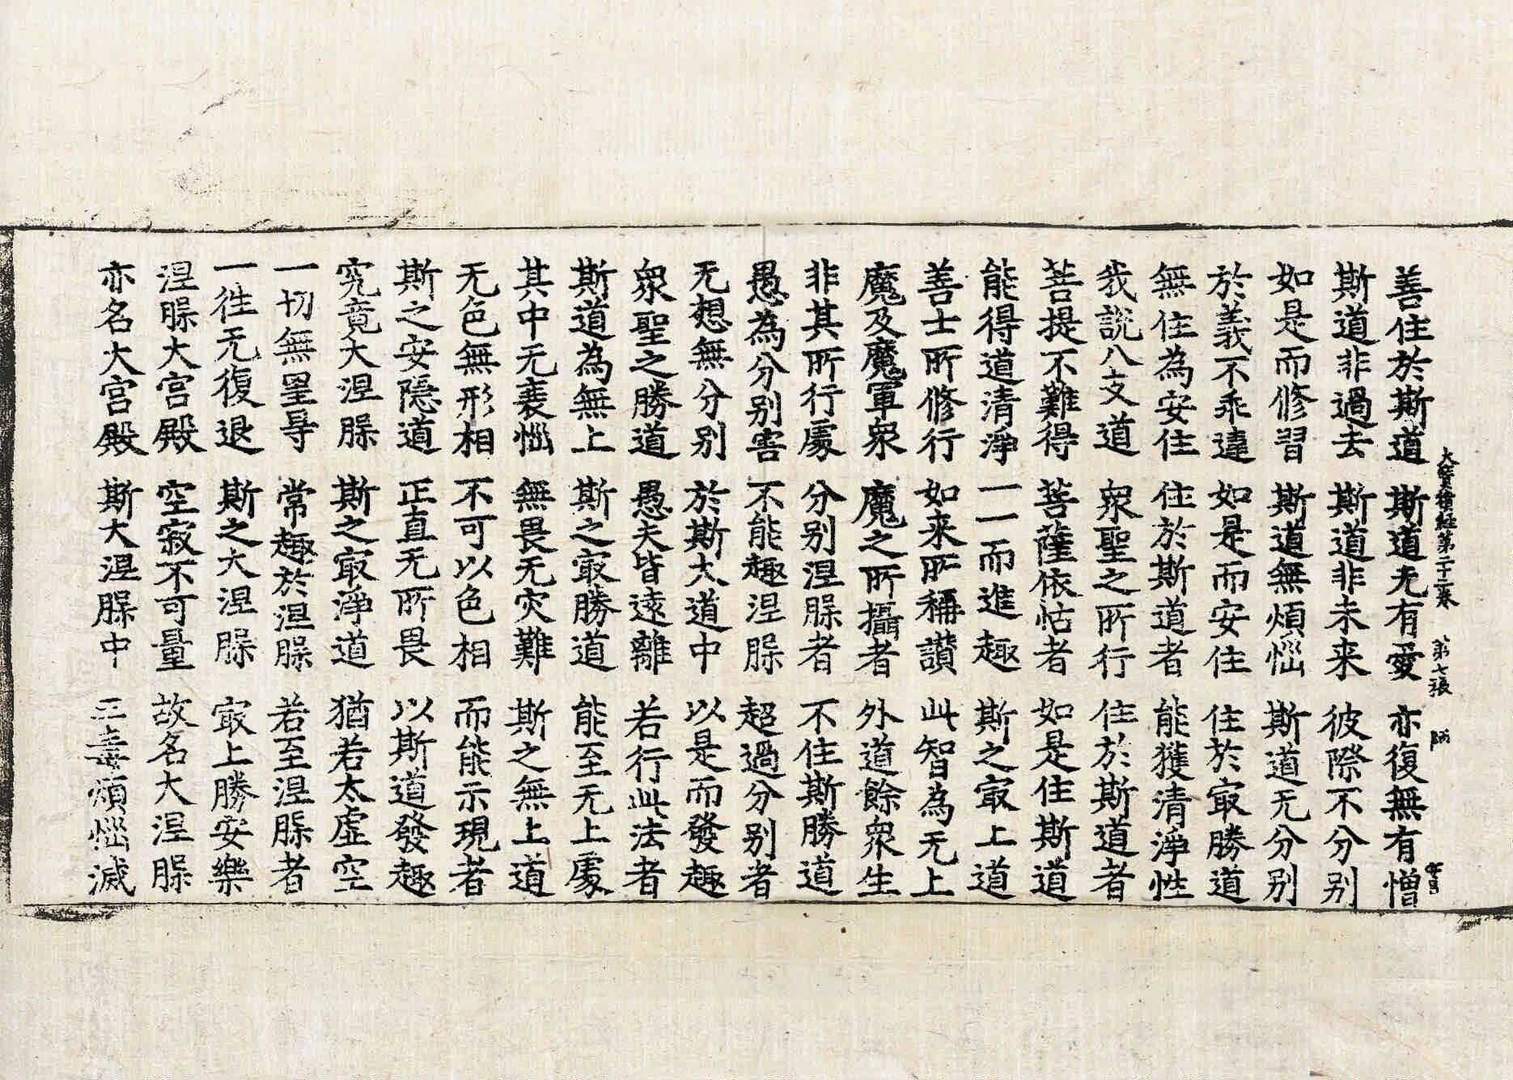 大寶積經第二十三卷 第七張 師
善住於斯道 斯道无有愛 亦復無有憎
斯道非過去 斯道非未来 彼際不分别
如是而修習 斯道無煩惱 斯道无分别
於義不乖違 如是而安住 住於冣勝道
無住為安住 住於斯道者 能獲清淨性
我說八支道 衆聖之所行 住於斯道者
菩提不難得 菩薩依怙者 如是住斯道
能得道清淨 一一而進趣 斯之冣上道
善士所修行 如来所稱讃 此智為无上
魔及魔軍衆 魔之所攝者 外道餘衆生
非其所行處 分别涅槃者 不住斯勝道
愚為分别害 不能趣涅槃 超過分别者
无想無分别 於斯大道中 以是而發趣
衆聖之勝道 愚夫皆遠離 若行此法者
斯道為無上 斯之冣勝道 能至无上處
其中无衰惱 無畏无灾難 斯之無上道
无色無形相 不可以色相 而能示現者
斯之安隱道 正直无所畏 以斯道發趣
究竟大涅槃 斯之冣淨道 猶若太虛空
一切無罣㝵 常趣於涅槃 若至涅槃者
一往无復退 斯之大涅槃 冣上勝安樂
涅槃大宫殿 空寂不可量 故名大涅槃
亦名大宫殿 斯大涅槃中 三毒煩惱滅